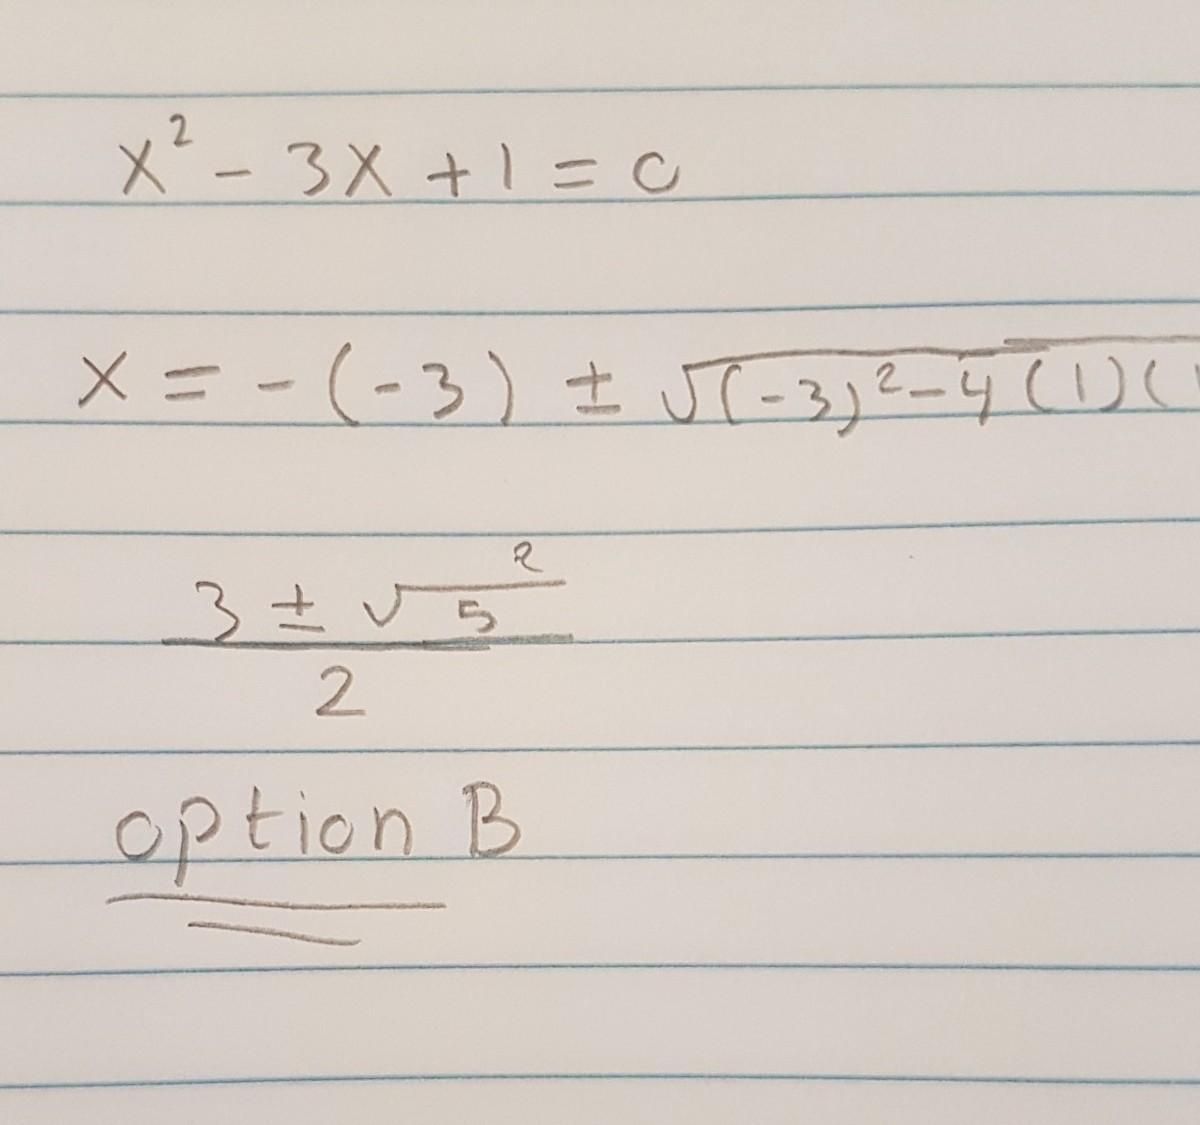 x² - 3x + 1 = 0
x = -(-3) ± √(-3)² - 4(1)(
3 ± √5 2
2
option B